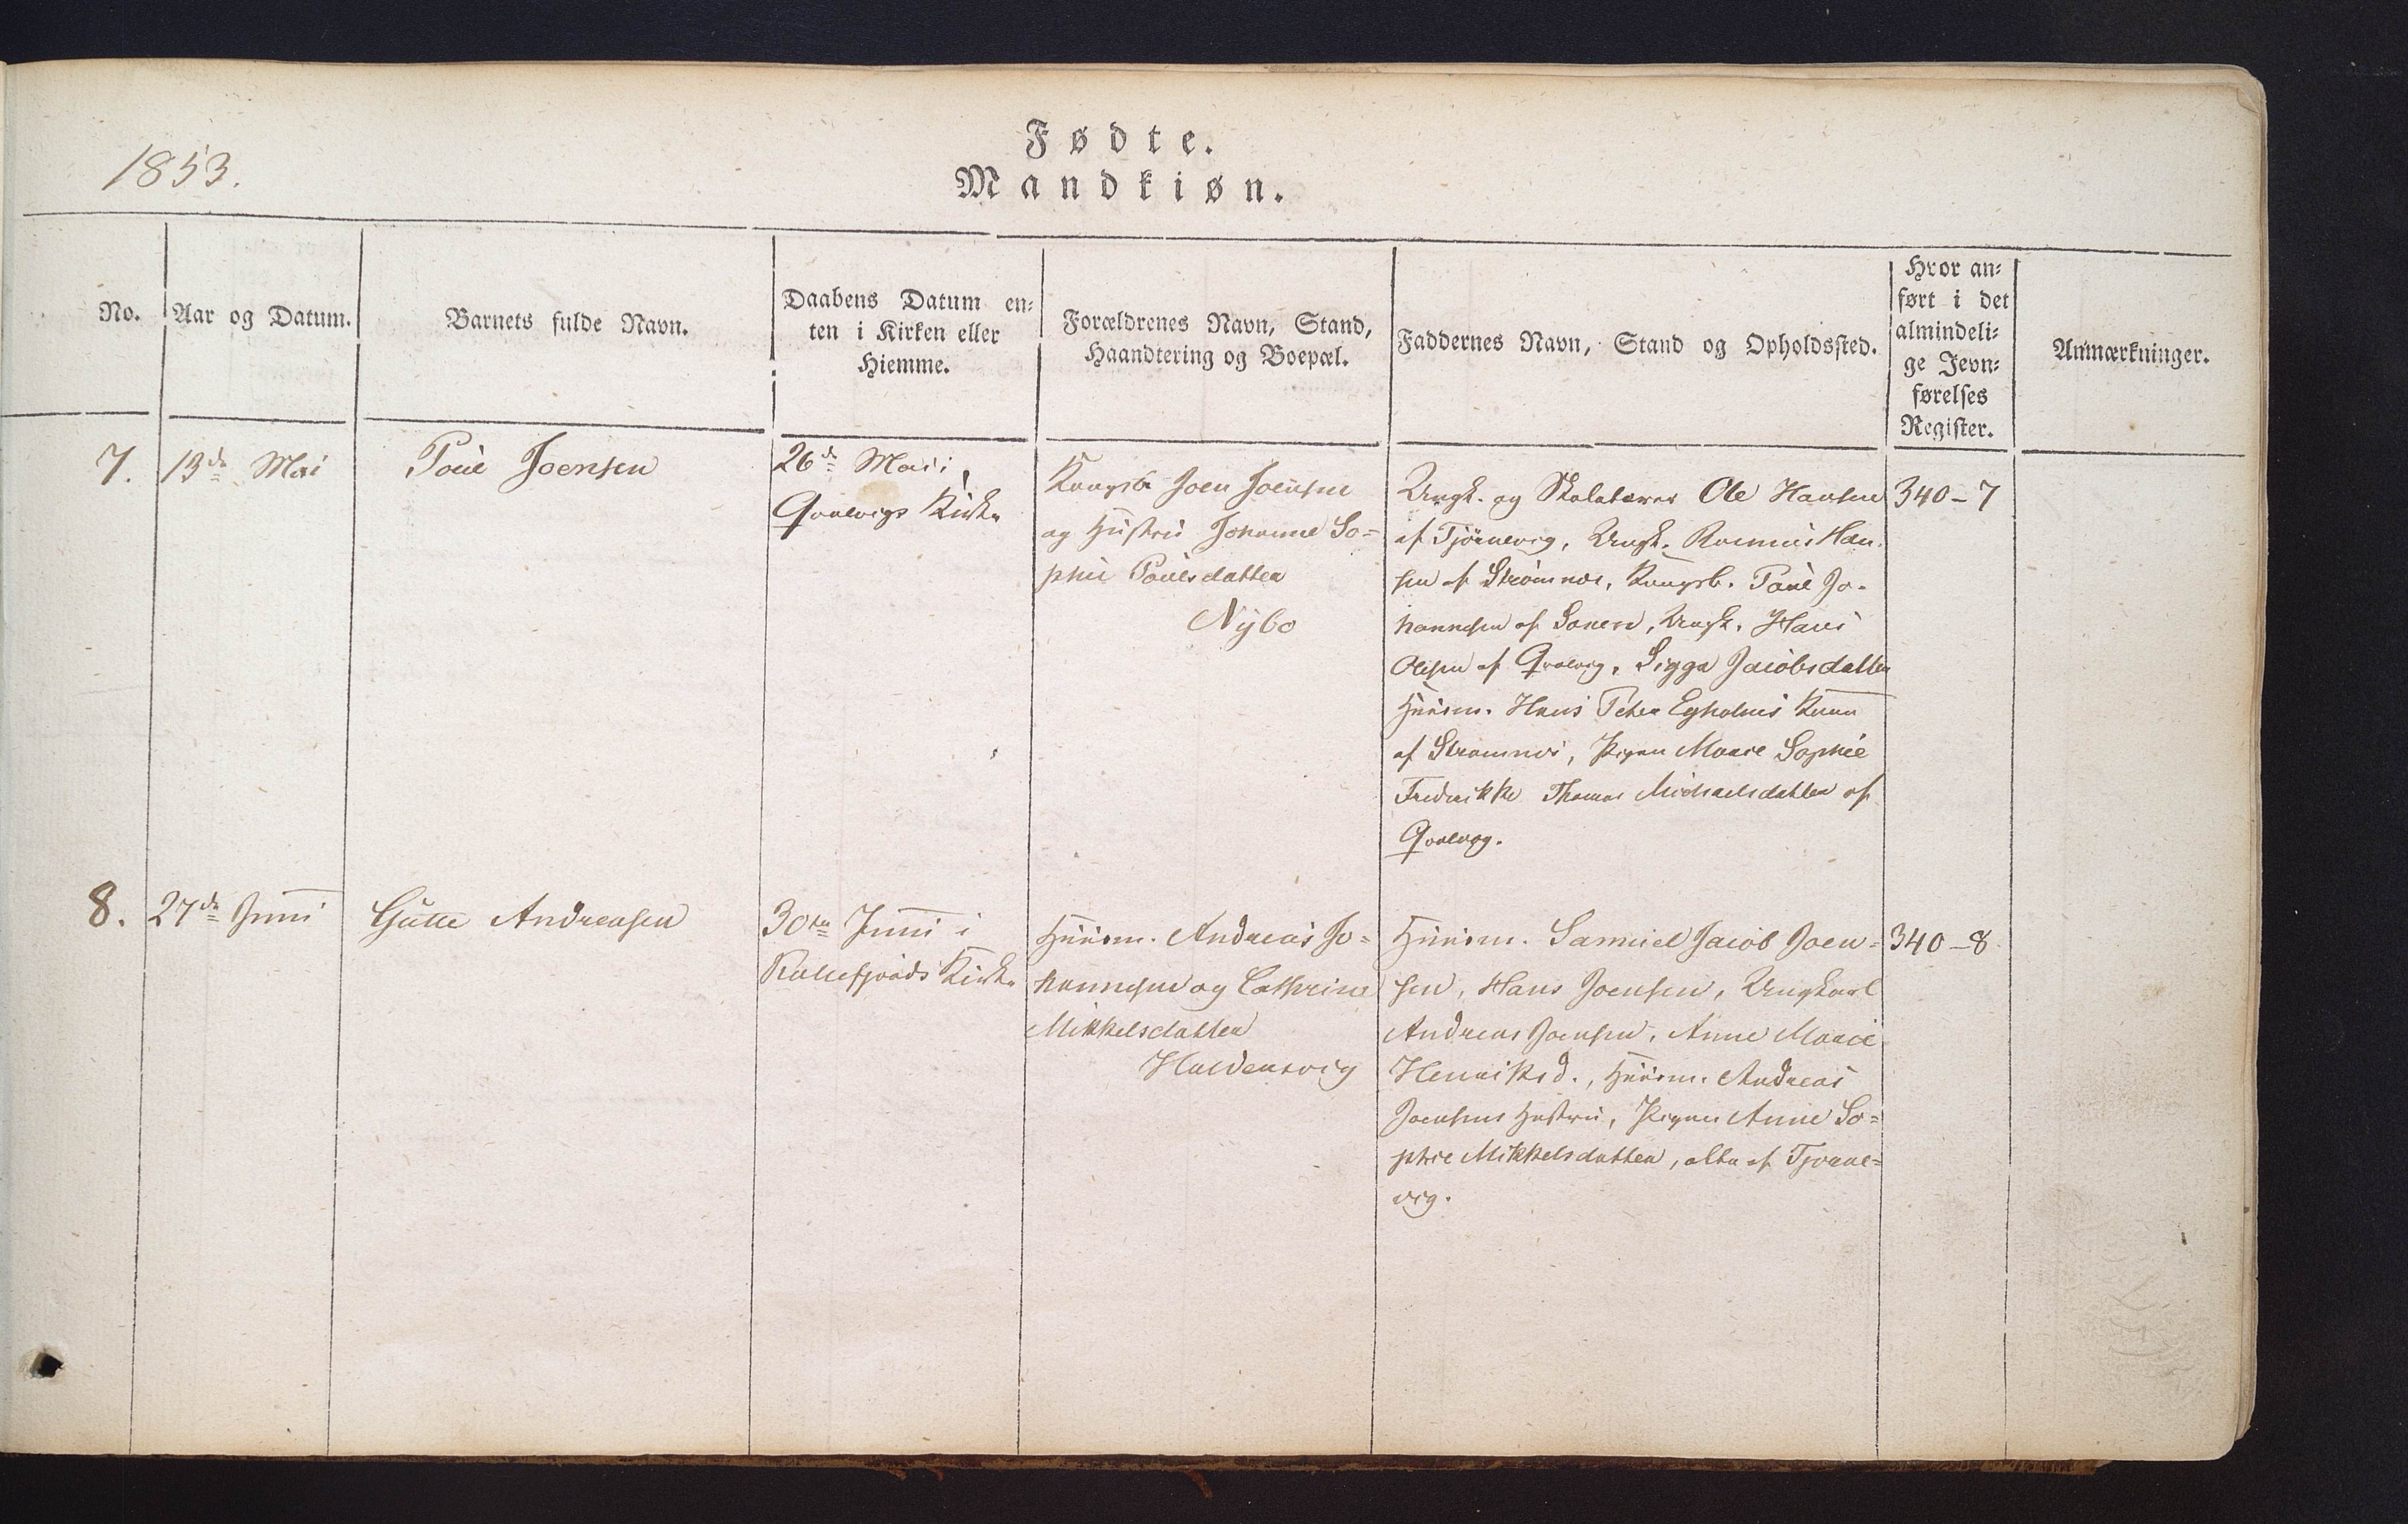 1853.
Fødte.
Mandkiøn.
No.
Aar og Datum.
Barnets fulde Navn.
Daabens Datum en-
ten i Kirken eller
Hiemme.
Forældrenes Navn, Stand,
Haandtering og Boepæl.
Faddernes Navn, Stand og Opholdssted.
Hvor an-
ført i det
almindeli-
ge Jevn-
førelses
Register.
Anmærkninger.
7.
13de Mai
Poul Joensen
26de Mai i
Qvalvigs Kirke
Kongsb. Joen Joensen
og Hustru Johanne So-
phie Poulsdatter
Nybo
Ungk. og Skolelærer Ole Hansen
af Tjørnevig, Ungk. Rasmus Han-
sen af Strømnæs, Kongsb. Poul Jo-
hannesen af, Ungk. Hans
Olesen af Qvalvig, Sigga Jacobsdatter
Huusm. Hans Peter Egholms Kone
af Strømnæs, Pigen Marie Sophie
Frederikke Thomas Michaelsdatter af
Qvalvig.
340-7
8.
27de Juni
Gutte Andreasen
30te Juni i
Kollefjords Kirke
Huusm. Andreas Jo-
hannesen og Cathrine
Mikkelsdatter
Haldensvig
Huusm. Samuel Jacob Joen-
sen, Hans Joensen, Ungkarl
Andreas Joensen, Anne Marie
Henriksd., Huusm. Andreas
Joensens Hustru, Pigen Anne So-
phie Mikkelsdatter, alle af Tjørne-
vig.
340-8